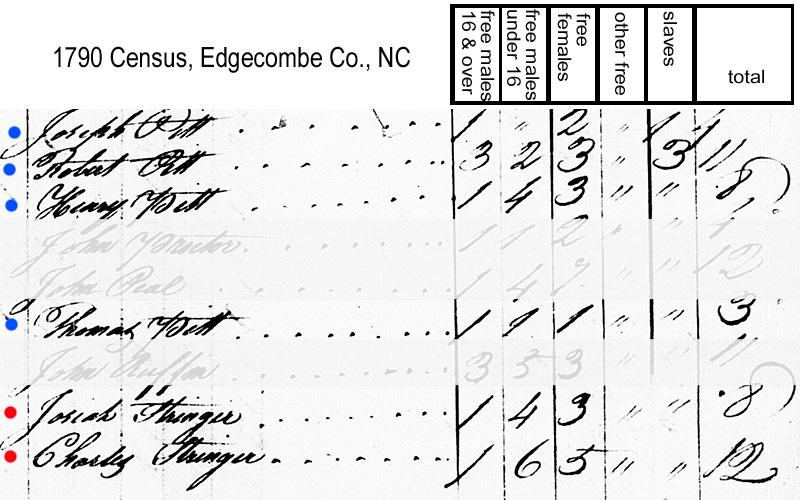 1790 Census, Edgecombe Co., NC
free males 16 & over
free males under 16
free females
other free
slaves
total
Joseph Pitt 1 " 2 " 1
Robert Pitt 3 2 3 " 3 11
Henry Pitt 1 4 3 " " 8
John Proctor 1 1 2 " "
John Peal 1 4 7 " " 12
Thomas Pitt 1 1 1 " " 3
John Ruffin 3 5 3 " " 11
Josiah Stringer 1 4 3 " " 8
Charles Stringer 1 6 5 " " 12